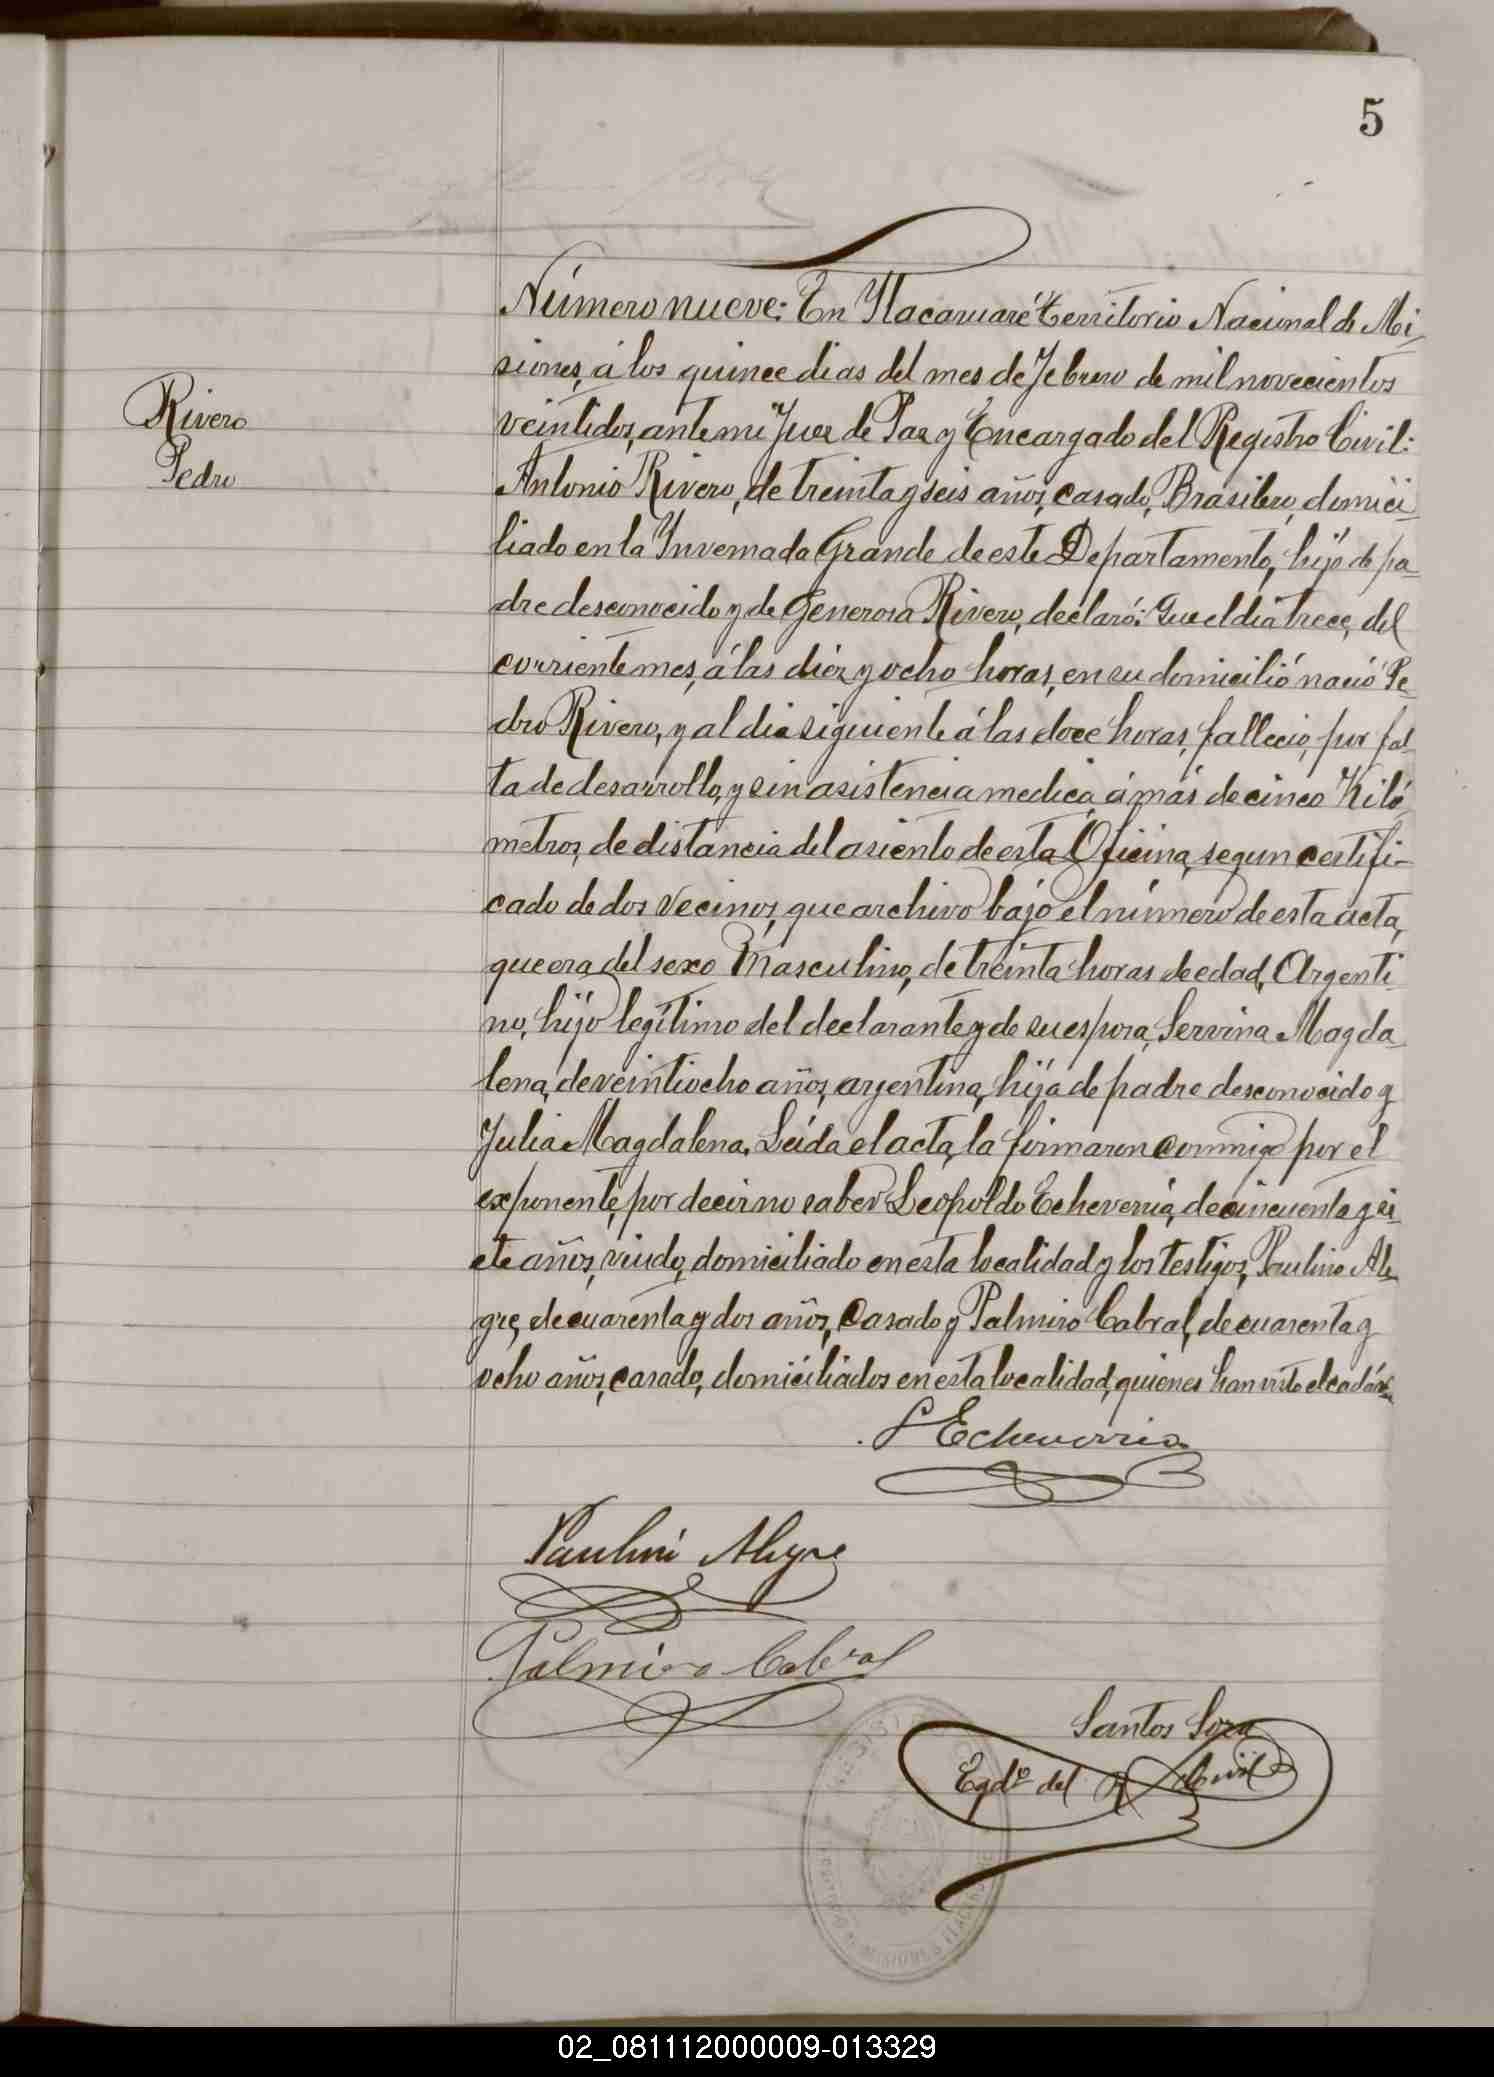 5
Rivero
Pedro
Número nueve: En Ytacaruaré Territorio Nacional de Mi-
siones, á los quince dias del mes de Febrero de mil novecientos
veintidos, ante mi Juez de Paz y Encargado del Registro Civil:
Antonio Rivero, de treinta y seis años, casado, Brasilero, domici-
liado en la Invernada Grande de este Departamento, hijo de pa-
dre desconocido y de Generosa Rivero, declaró: Que el dia trece, del
corriente mes, á las diez y ocho horas, en su domicilió nació Pe-
dro Rivero, y al dia siguiente á las doce horas, falleció, por fal-
ta de desarrollo, y sin asistencia medica, á más de cinco Kiló-
metros, de distancia del asiento de esta Oficina, segun certifi-
cado de dos vecinos, que archivo bajo el número de esta acta,
que era del sexo Masculino, de treinta horas de edad, Argenti-
no, hijo legítimo del declarante y de su esposa, Servina Magda-
lena, de veintiocho años, argentina, hija de padre desconocido y
Julia Magdalena. Leida el acta, la firmaron conmigo por el
exponente, por decir no saber Leopoldo Echeverria, de cincuenta y si-
ete años, viudo, domiciliado en esta localidad y los testigos, Paulino Ale-
gre, de cuarenta y dos años, Casado y Palmiro Cabral, de cuarenta y
ocho años, casado, domiciliados en esta localidad, quienes han visto el cadáver
L Echeverria
Paulino Alegre
Palmiro Cabral
Santos Soza
Egdo del R Civil
02_081112000009-013329